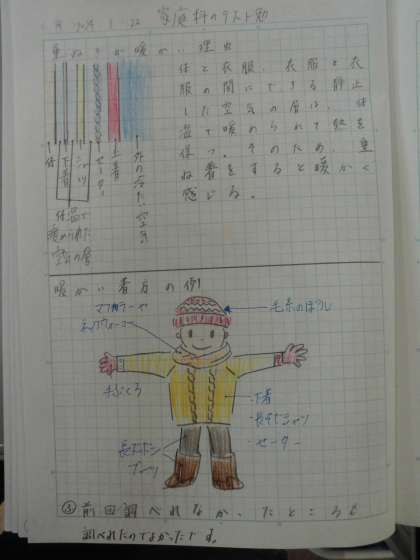 家庭科のテスト勉
重ねぎが暖かい理由
体と衣服、衣服と衣
服の間にできる静止
した空気の層は、体
温で暖められて熱を
保つ。そのため、重
ね着をすると暖かく
感じる。
体
下着
シャツ
セーター
上着
外の冷たい空気
体温で
暖められた
空気の層
暖かい着方の例
マフラーや
ネックウォーマー
毛糸のぼうし
手ぶくろ
下着
長そでシャツ
セーター
長ズボン
ブーツ
前回調べれなかったところも
調べれたのでよかったです。